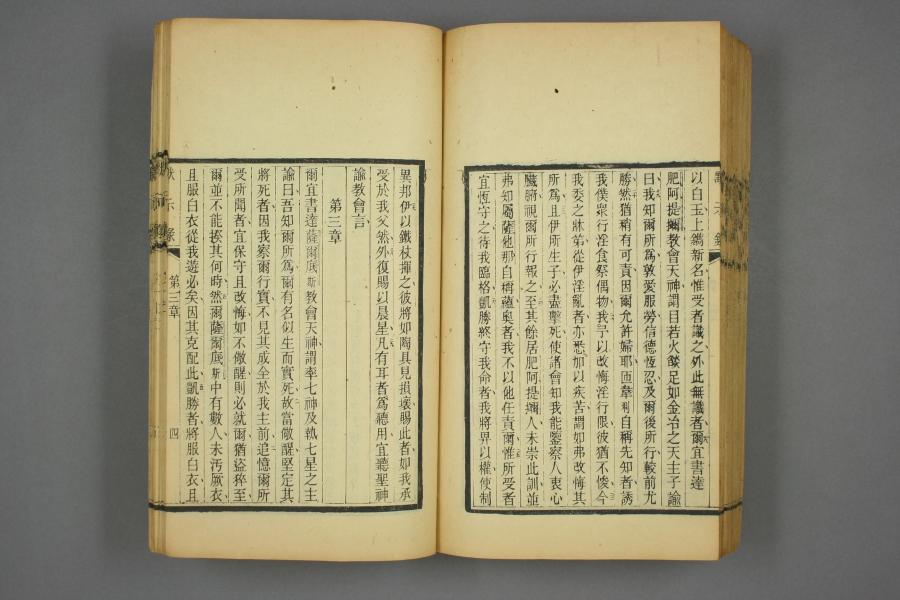 以白玉上鐫新名惟受者識之外此無識者爾宜書達
肥阿提爾教會天神謂目若火燄足如金冶之天主子諭
曰我知爾所爲敦愛服勞信德恆忍及爾後所行較前尤
勝然猶稍有可責因爾允許婦耶匝韋利自稱先知者誘
我僕衆行淫食祭偶物我予以改悔淫行限彼猶不悛今
我委之牀笫從伊淫亂者亦悉加以疾苦謂如弗改悔其
所爲並伊所生子必盡擊死使諸會知我能鑒察人衷心
臟腑視爾所行報之至其餘居肥阿提爾人未崇此訓並
弗知屬薩他那自稱蘊奧者我不以他任責爾惟所受者
宜恆守之待我臨格凱勝終守我命者我將畀以權使制
異邦伊以鐵杖揮之彼將如陶具見損壞賜此者如我承
受於我父然外復賜以晨星凡有耳者爲聽用宜聽聖神
諭教會言
第三章
爾宜書達薩爾底斯教會天神謂率七神及執七星之主
諭曰吾知爾所爲爾有名似生而實死故當儆醒堅定其
將死者因我察爾行實不見其成全於我主前追憶爾所
受所聞者宜保守且改悔如不儆醒則必就爾猶盜猝至
爾並不能揆其何時然爾薩爾底斯中有數人未汚厥衣
且服白衣從我遊必矣因其克配此凱勝者將服白衣且
第三章
四